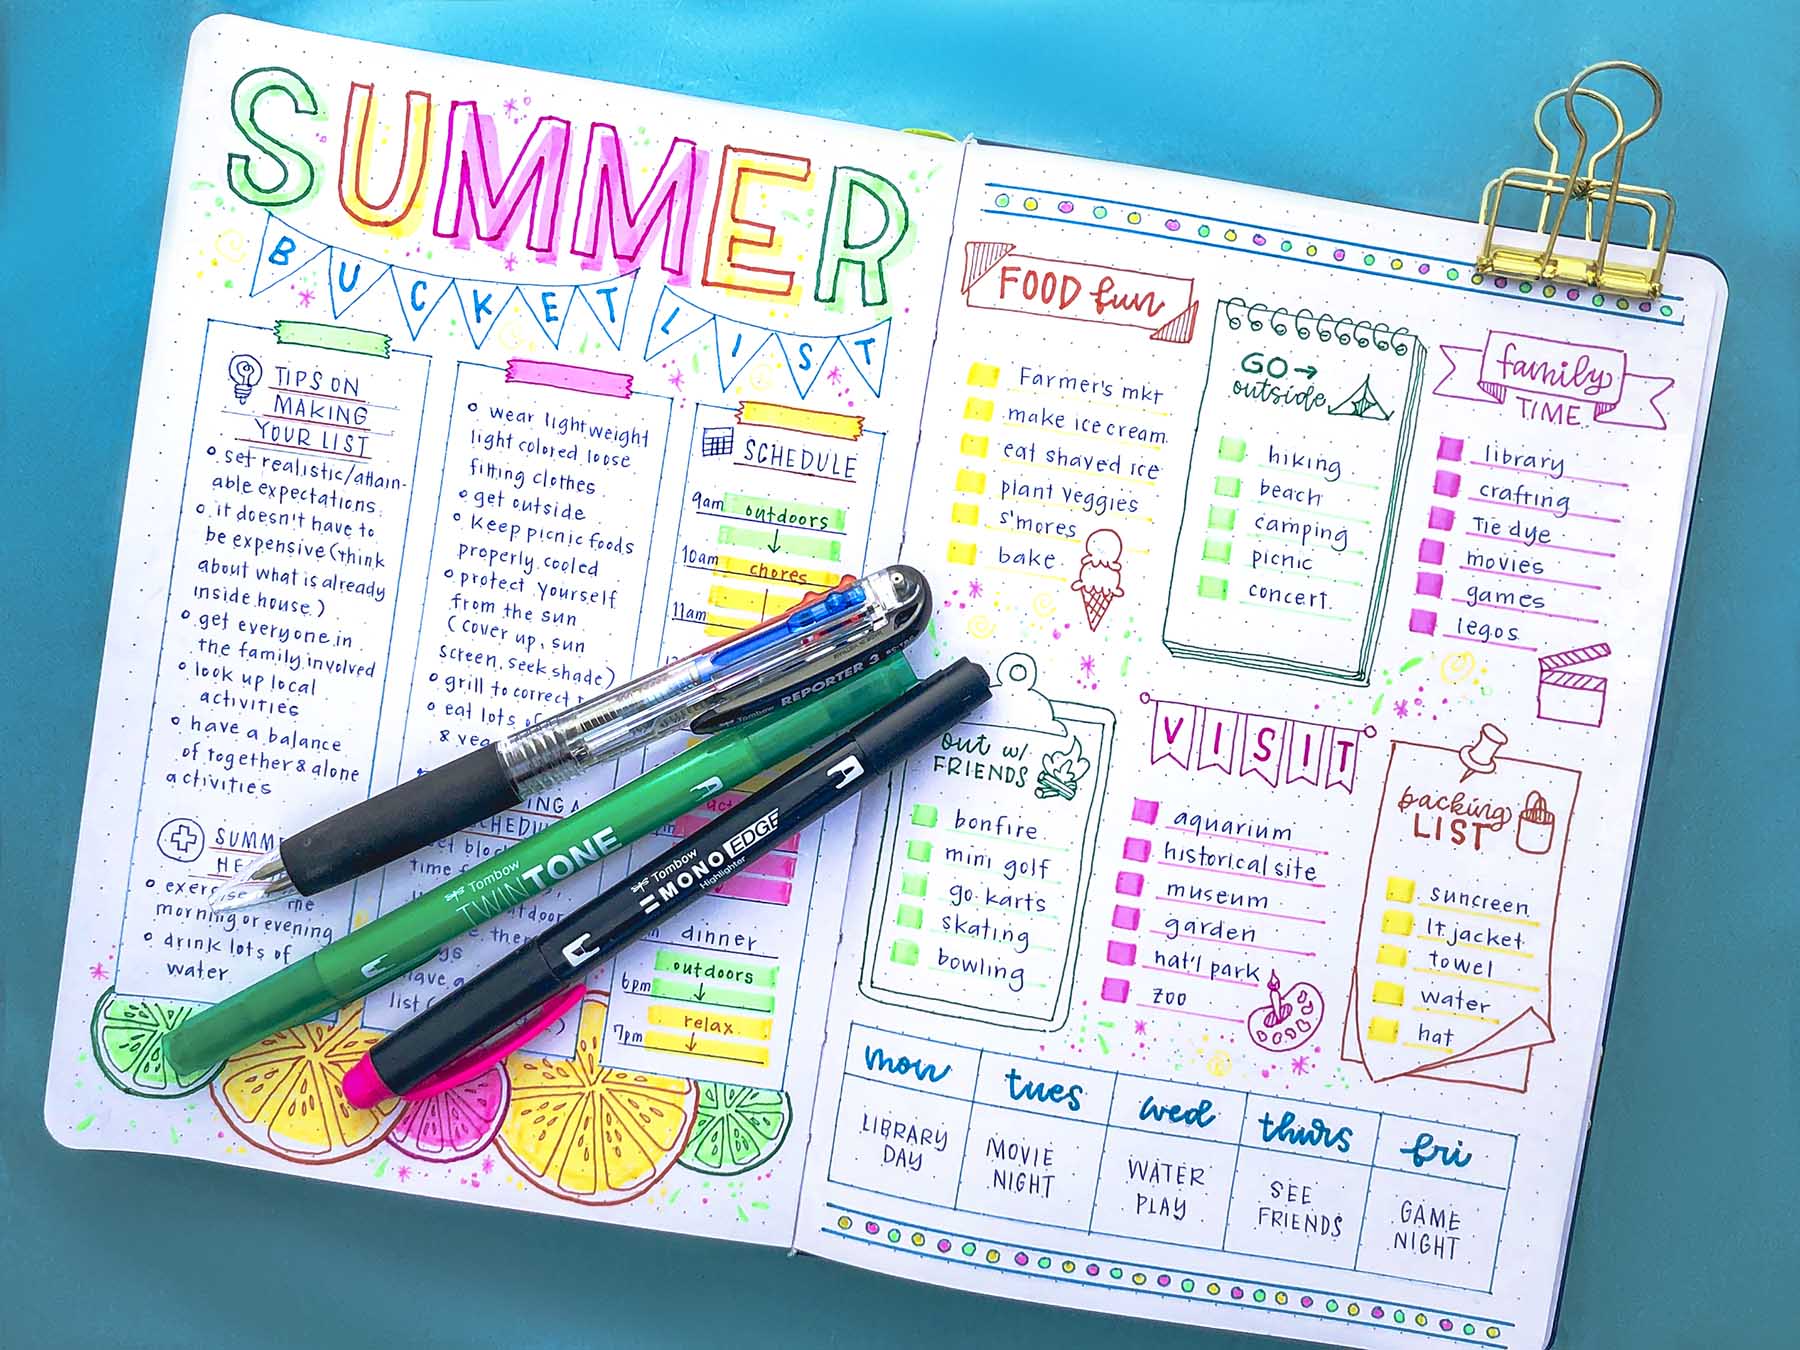 SUMMER
BUCKET LIST
TIPS ON
MAKING
YOUR LIST
set realistic/attain-
able expectations.
it doesn't have to
be expensive (think
about what is already
inside house.)
get everyone in
the family involved
look up local
activities
have a balance
of together & alone
activities
SUMM
HE
exer
the
morning or evening
drink lots of
water.
wear lightweight
light colored loose
fitting clothes
get outside
keep picnic foods
properly cooled
protect yourself
from the sun
(cover up, sun
screen, seek shade)
grill to correct
eat lots of
& ve
time
have a
list
SCHEDULE
9am outdoors
10am chores
11am
dinner
outdoors
6pm
relax
7pm
Tombow REPORTER 3
Tombow
TWINTONE
Tombow
MONO EDGE
Highlighter
FOOD fun
Farmer's mkt
make ice cream
eat shaved ice
plant veggies
s'mores
bake
GO →
outside
hiking
beach
camping
picnic
concert
family
TIME
library
crafting
Tie dye
movies
games
legos
out w/
FRIENDS
bonfire
mini golf
go karts
skating
bowling
VISIT
aquarium
historical site
museum
garden
nat'l park
zoo
packing
LIST
suncreen
lt jacket
towel
water
hat
mon
tues
wed
thurs
fri
LIBRARY
DAY
MOVIE
NIGHT
WATER
PLAY
SEE
FRIENDS
GAME
NIGHT